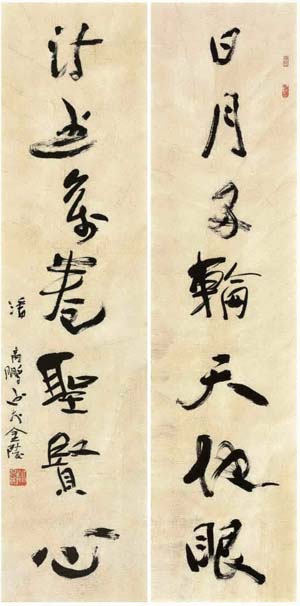 日月輪天地眼
詩書萬卷聖賢心
潘高鵬書於金陵